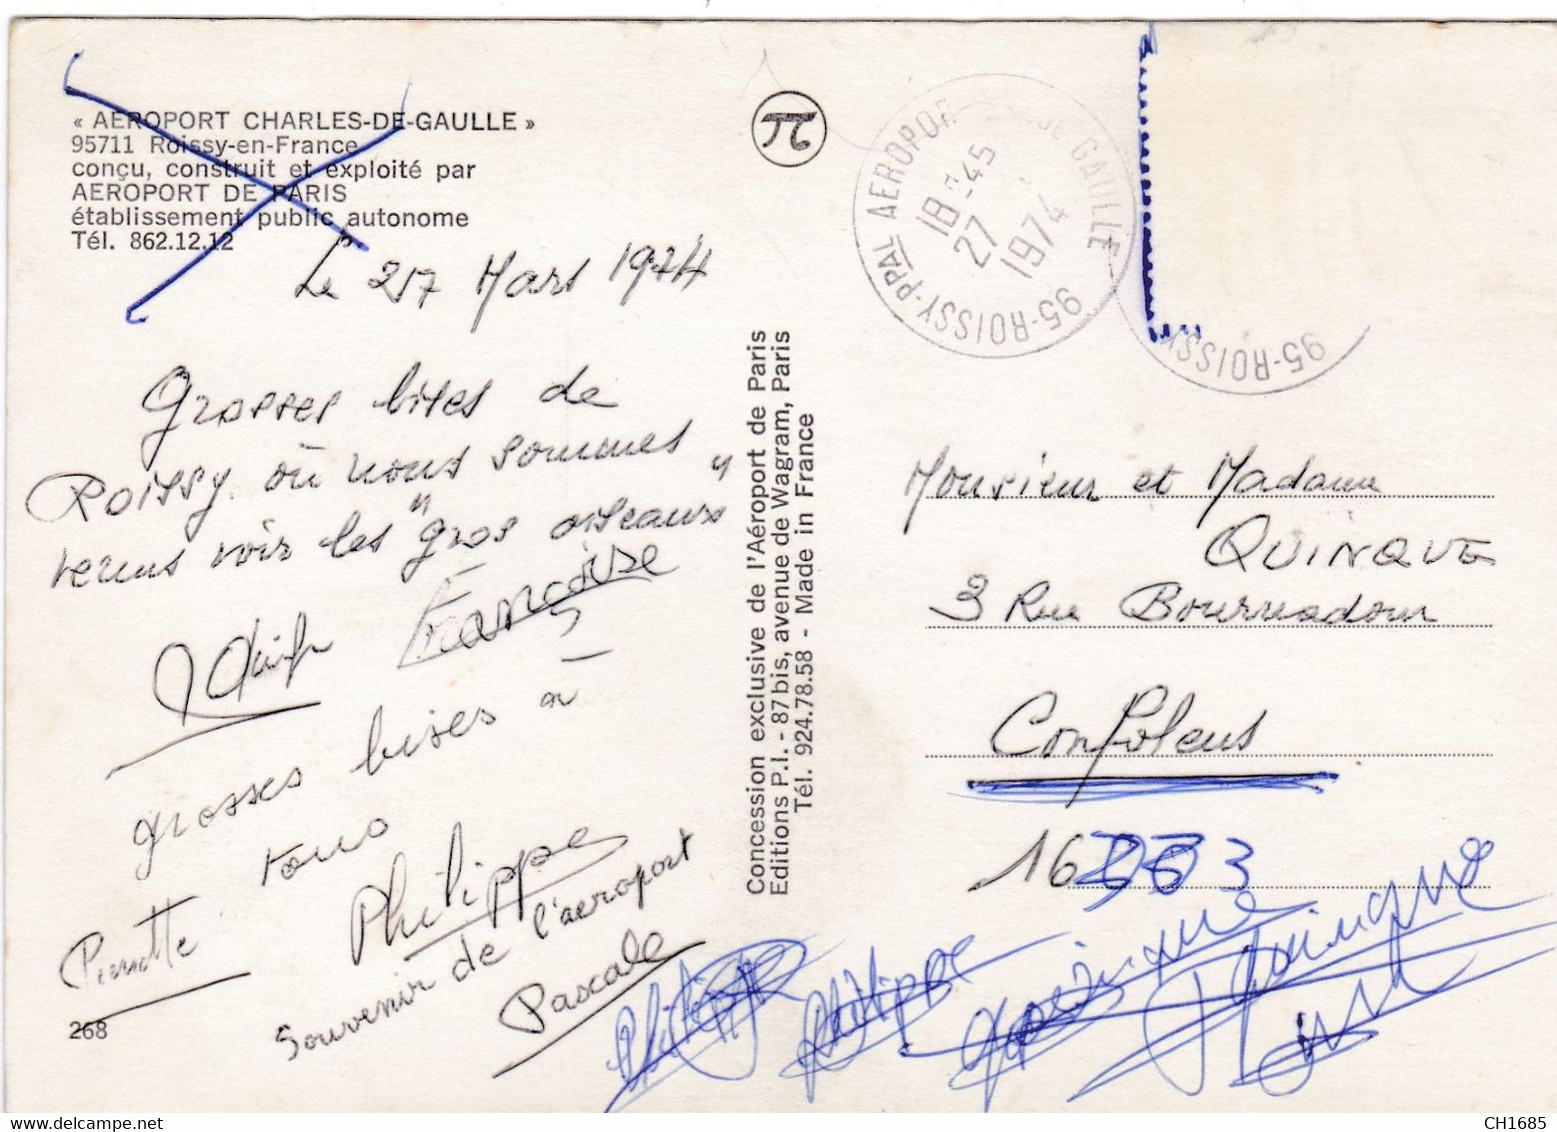 « AÉROPORT CHARLES-DE-GAULLE »
95711 Roissy-en-France
conçu, construit et exploité par
AEROPORT DE PARIS
établissement public autonome
Tél. 862.12.12
Le 27 Mars 1974
Grosses bises de
Roissy où nous sommes
venus voir les "gros oiseaux"
Françoise
grosses bises à
tous
Philippe
Pierrette
Souvenir de l'aéroport
Pascale
268
Concession exclusive de l'Aéroport de Paris
Editions P.I. - 87 bis, avenue de Wagram, Paris
Tél. 924.78.58 - Made in France
95-ROISSY-PPAL AEROPOR DE GAULLE
18-45
27
1974
95-ROISSY
Monsieur et Madame
QUINQUE
3 Rue Bournadour
Confolens
16
3
Philippe
Philippe
Quinque
CH1685